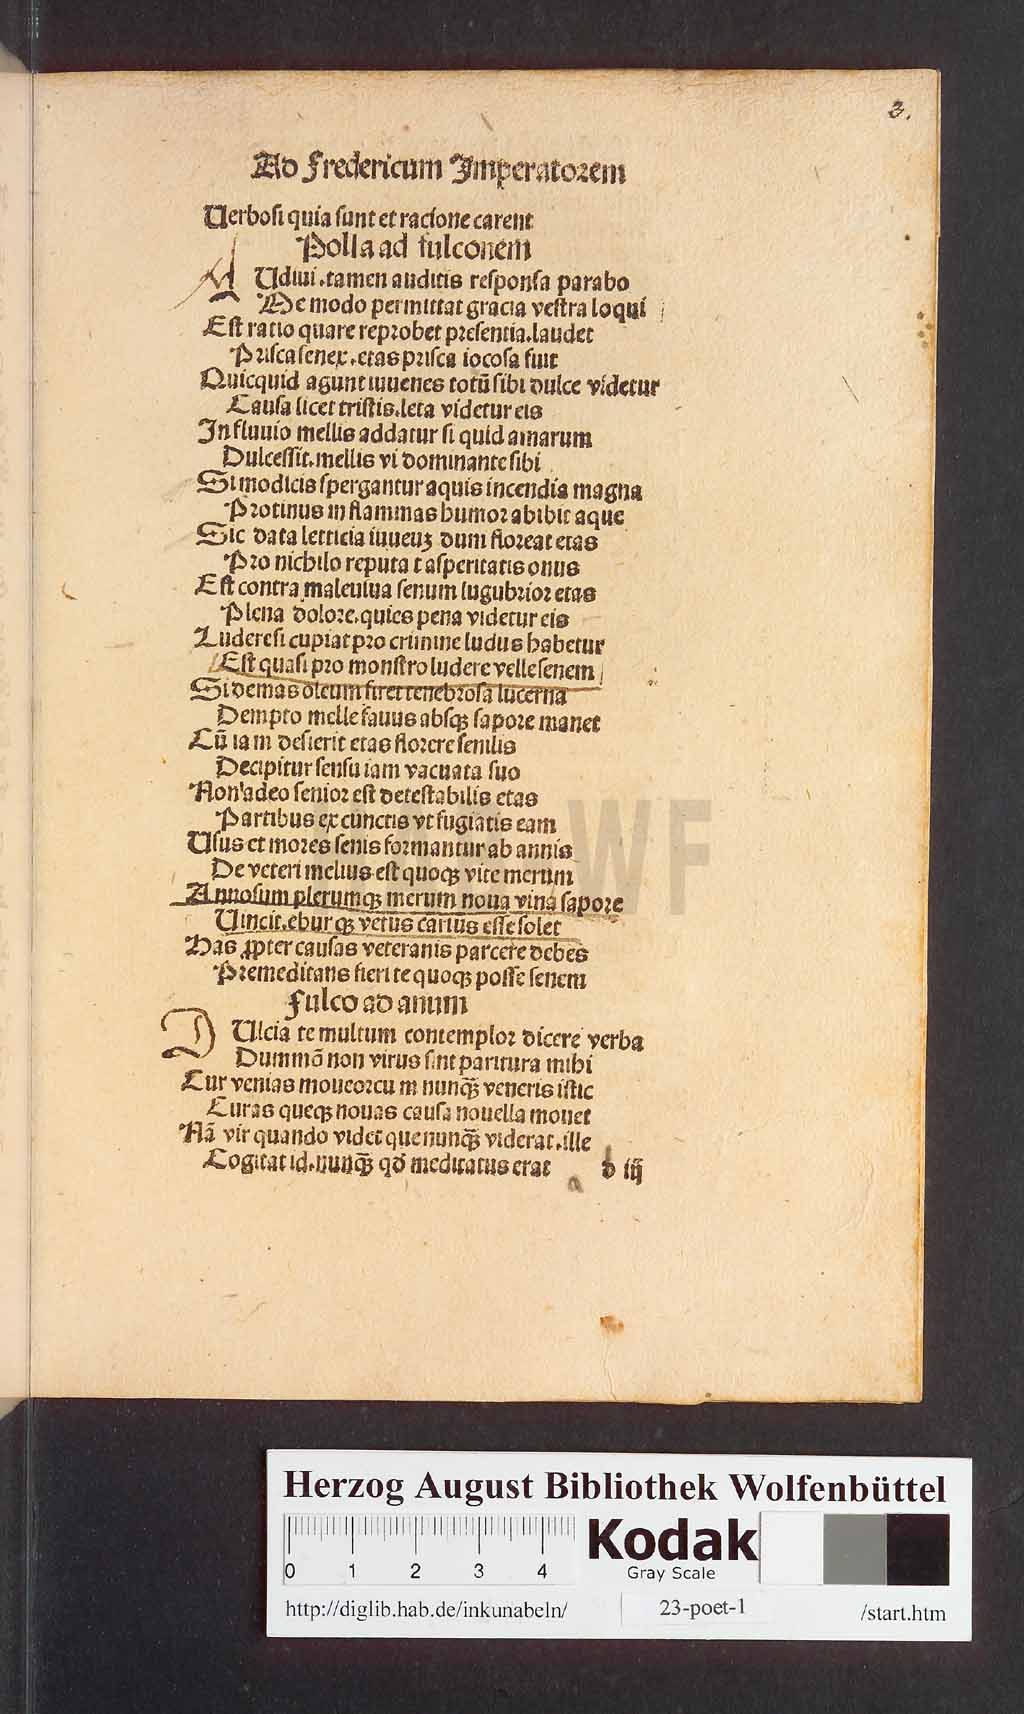 3.
Ad Fredericum Imperatorem
Uerbosi quia sunt et racione carent
Polla ad fulconem
A Udiui.tamen auditis responsa parabo
Me modo permittat gracia vestra loqui
Est ratio quare reprobet presentia.laudet
Prisca senex.etas prisca iocosa fuit
Quicquid agunt iuuenes totū sibi dulce videtur
Causa licet tristis.leta videtur eis
In fluuio mellis addatur si quid amarum
Dulcessit.mellis vi dominante sibi
Si modicis spergantur aquis incendia magna
Protinus in flammas humor abibit aque
Sic data letticia iuueuʒ dum floreat etas
Pro nichilo reputa t asperitatis onus
Est contra maleuiua senum lugubrior etas
Plena dolore.quies pena videtur eis
Luderesi cupiat pro crimine ludus habetur
Est quasi pro monstro ludere velle senem
Si demas oleum firet tenebrosa lucerna
Dempto melle fauus absqꝫ sapore manet
Cū iam desierit etas florere senilis
Decipitur sensu iam vacuata suo
Non adeo senior est detestabilis etas
Partibus ex cunctis vt fugiatis eam
Usus et mores senis formantur ab annis
De veteri melius est quoqꝫ vite merum
Annosum plerumqꝫ merum noua vina sapore
Uincit.ebur qꝫ vetus carius esse solet
Has ꝓpter causas veteranis parcere debes
Premeditans fieri te quoqꝫ posse senem
Fulco ad anum
D Ulcia te multum contemplor dicere verba
Dummō non virus sint paritura mihi
Cur venias moueorcu m nunqꝫ̄ veneris istic
Curas queqꝫ nouas causa nouella mouet
Nā vir quando videt que nunqꝫ̄ viderat.ille
Cogitat id.nunqꝫ̄ qď meditatus erat d iij
HAB WF
Herzog August Bibliothek Wolfenbüttel
0 1 2 3 4
Kodak
Gray Scale
http://diglib.hab.de/inkunabeln/ 23-poet-1 /start.htm